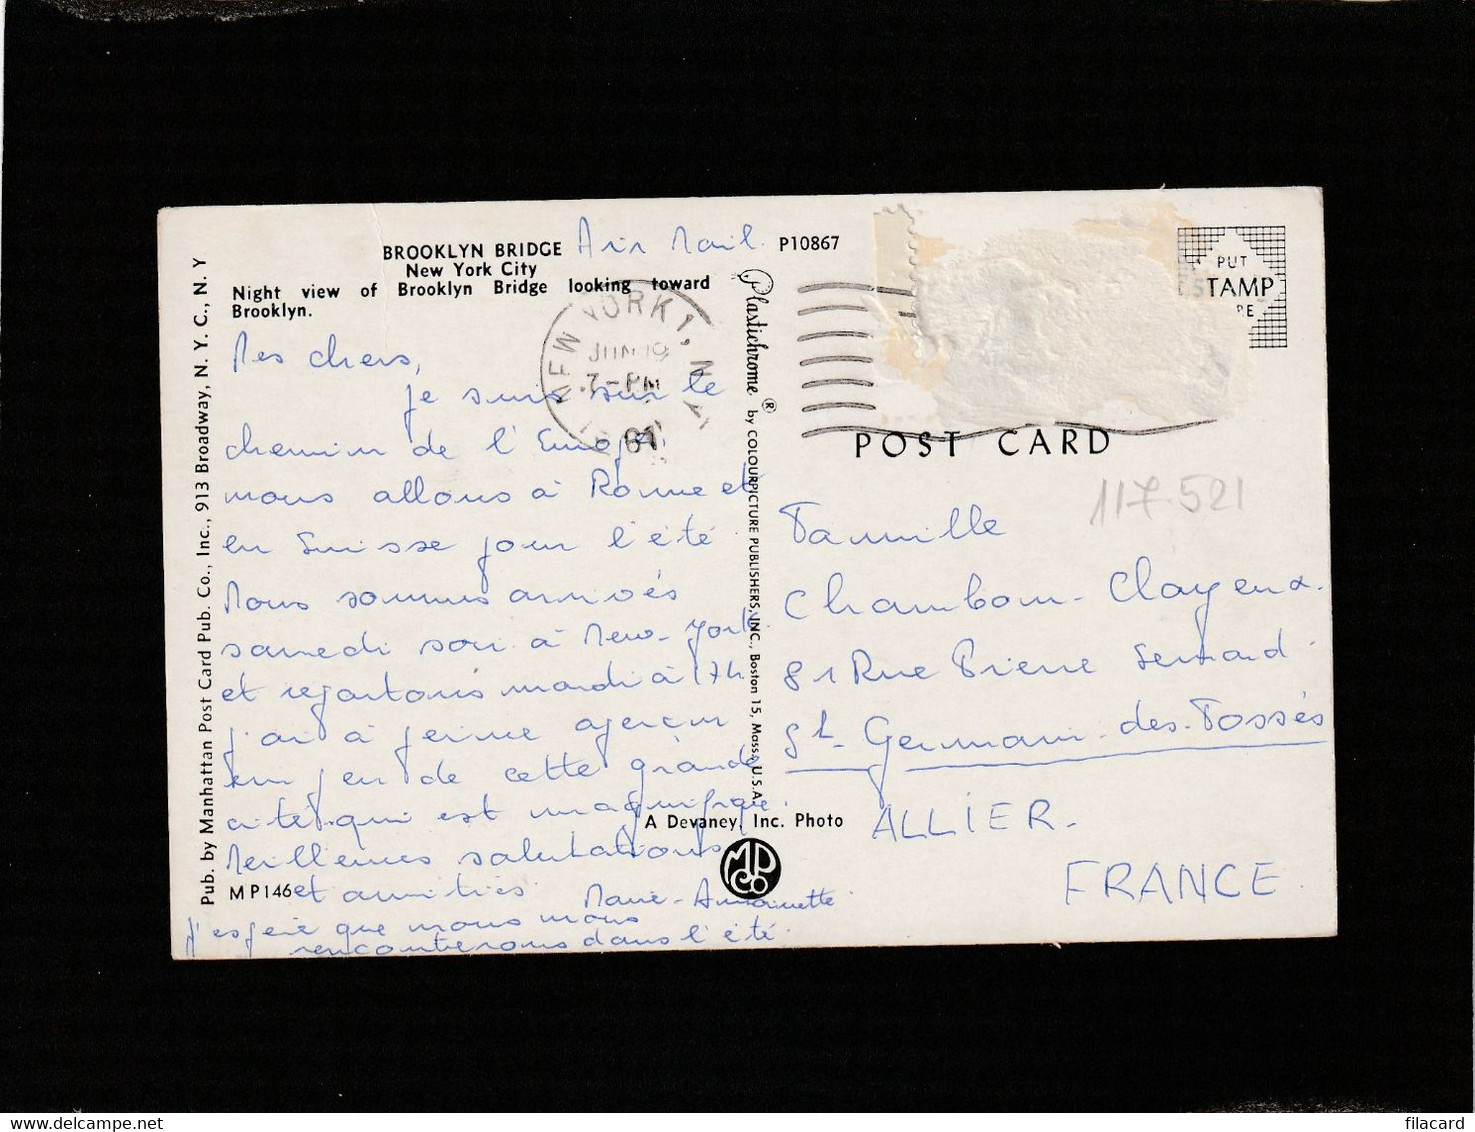 BROOKLYN BRIDGE
New York City
Night view of Brooklyn Bridge looking toward
Brooklyn.
Air Mail
P10867
Pub. by Manhattan Post Card Pub. Co., Inc., 913 Broadway, N. Y. C., N. Y
Mes chers,
je suis sur le
chemin de l'Europe,
nous allons à Rome et
en Suisse pour l'été.
Nous sommes arrivés
samedi soir à New-York
et repartons mardi à 17h
j'ai à peine aperçu
un peu de cette grande
cité qui est magnifique.
Meilleures salutations
et amitiés.
Marie-Antoinette
j'espère que nous nous
rencontrerons dans l'été.
MP146
NEW YORK 1, N.Y.
JUN 19
7-PM
Plastichrome ® by COLOURPICTURE PUBLISHERS, INC., Boston 15, Mass., U.S.A.
A Devaney, Inc. Photo
MPCo
PUT
STAMP
POST CARD
117.521
Famille
Chambon-Clayeux.
81 Rue Pierre Semard
St-Germain-des-Fossés
ALLIER.
FRANCE
filacard